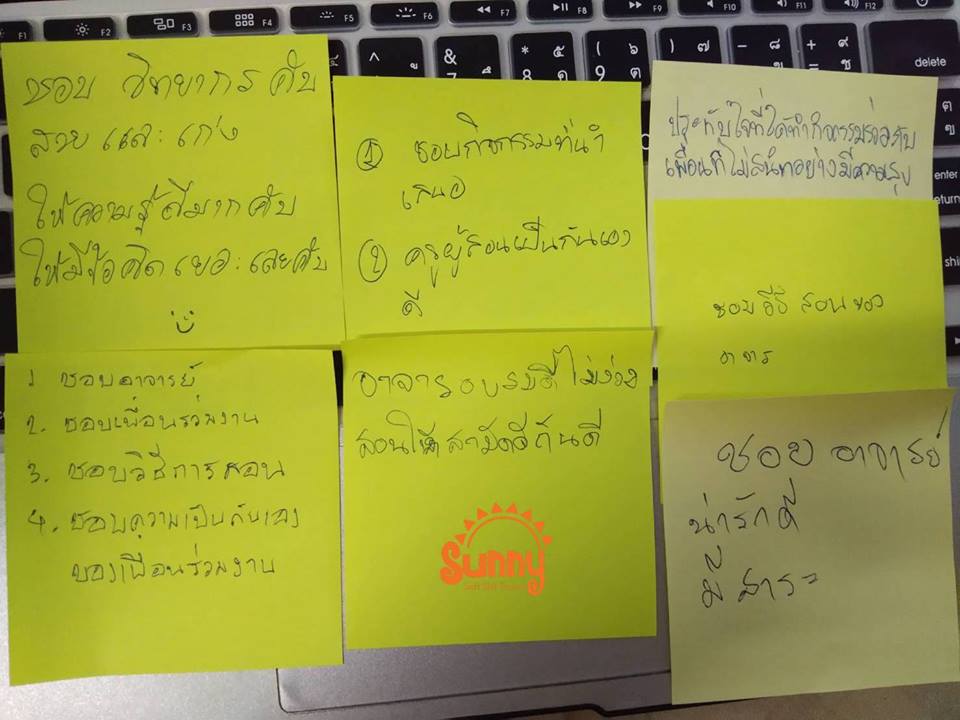 ชอบ วิทยากร คับ
สวย และ เก่ง
ให้ความรู้ดีมากคับ
ให้มีข้อคิดเยอะเลยคับ
① ชอบกิจกรรมที่นำ
เสนอ
② ครูผู้สอนเป็นกันเอง
ดี
ประทับใจที่ได้ทำกิจกรรมร่วมกับ
เพื่อนที่ไม่สนิทอย่างมีความสุข
ชอบวิธี สอนของ
อาจาร
1 ชอบอาจารย์
2. ชอบเพื่อนร่วมงาน
3. ชอบวิธีการสอน
4. ชอบความเป็นกันเอง
ของเพื่อนร่วมงาน
อาจารอบรมดี ไม่ง่วง
สอนให้สามัคคีกันดี
Sunny
ชอบ อาจารย์
น่ารักดี
มีสาระ
F1
F2
F3
F4
F5
F6
F7
F8
F9
F10
F11
F12
delete
enter
return